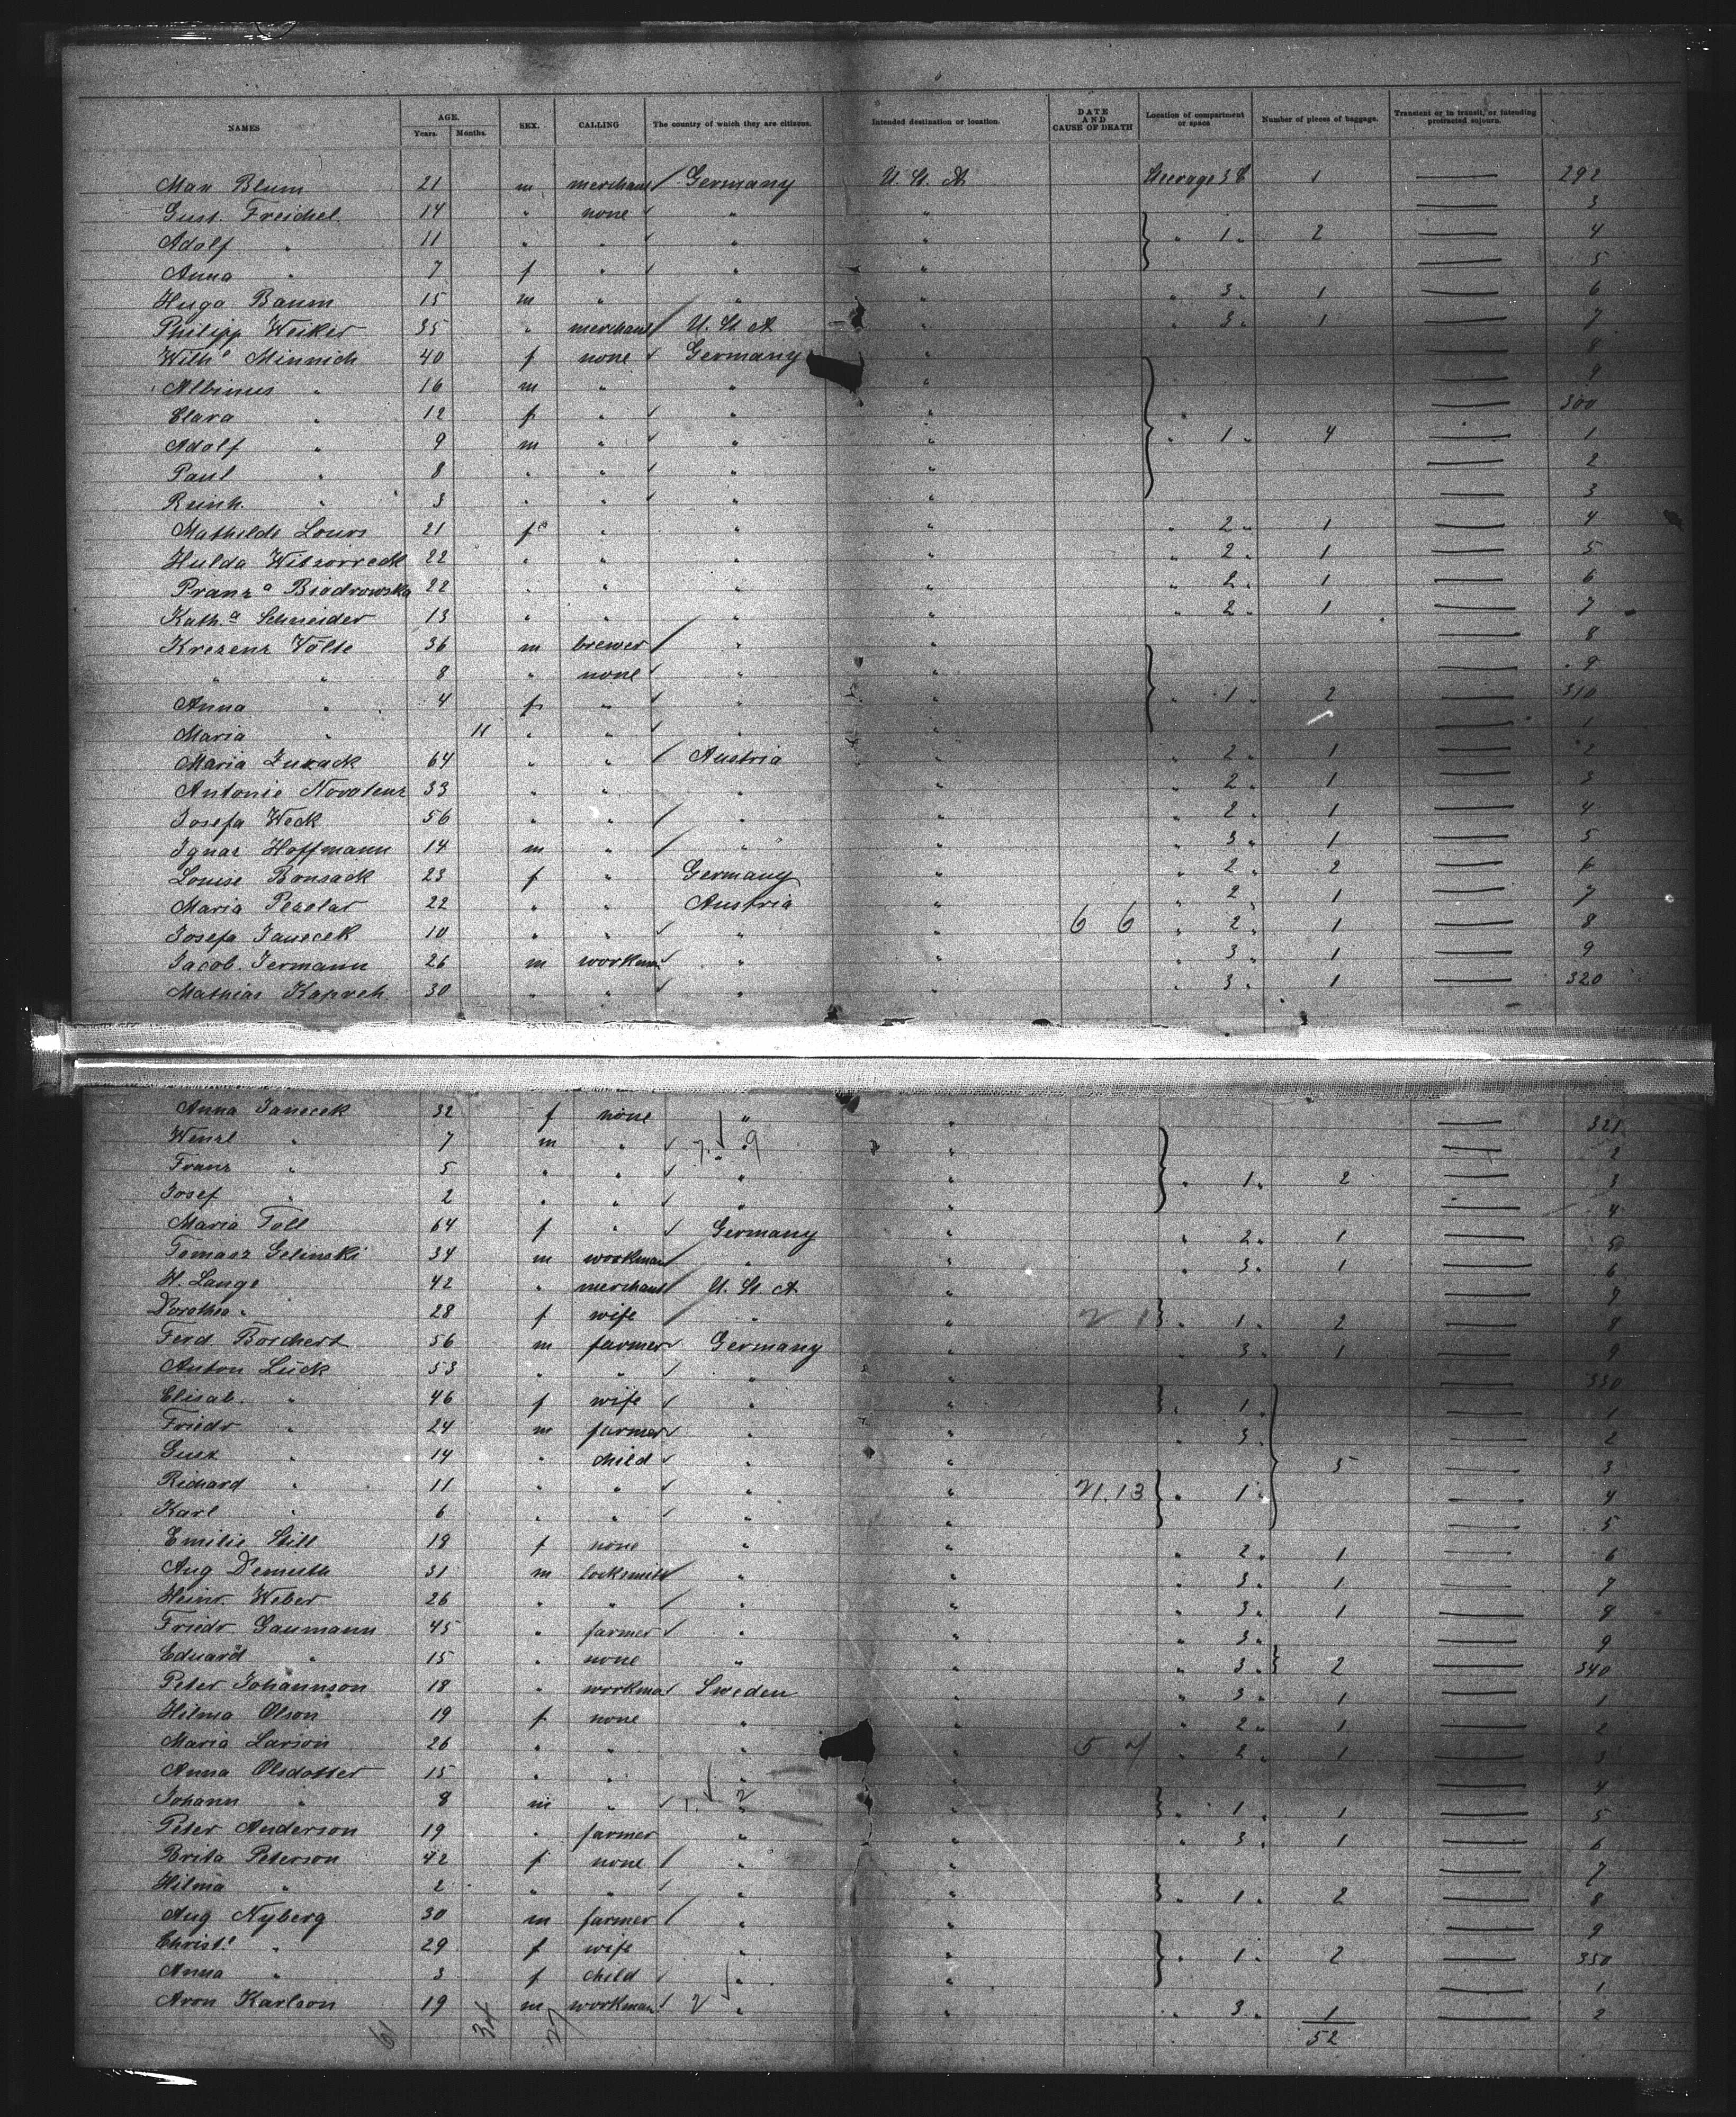 NAMES AGE. Years. Months. SEX. CALLING The country of which they are citizens. Intended destination or location. DATE AND CAUSE OF DEATH Location of compartment or space Number of pieces of baggage. Transient or in transit, or intending protracted sojourn.
Max Blum 21 m merchant Germany U. St. A Steerage 3 1 — 292
Gust. Freichel 14 " none " " — 3
Adolf " 11 " " " " " 1 " 2 — 4
Anna " 7 f " " " — 5
Hugo Baum 15 m " " " " 3 " 1 — 6
Philipp Weiker 35 " merchant U. St. A " " 3 " 1 — 7
Wilhe Minnich 40 f none Germany " — 8
Albinus " 16 m " " " — 9
Clara " 12 f " " " " — 300
Adolf " 9 m " " " " 1 " 4 — 1
Paul " 8 " " " " — 2
Reinh. " 3 " " " " — 3
Mathilde Lours 21 f " " " " 2 " 1 — 4
Hulda 22 " " " " " 2 " 1 — 5
Franza Biodrowska 22 " " " " " 2 " 1 — 6
Katha Schneider 13 " " " " " 2 " 1 — 7
Krezenz Völte 36 m brewer " " — 8
" " 8 " none " " — 9
Anna " 4 f " " " " 1 " 2 — 310
Maria " 11 " " " " — 1
Maria 64 " " Austria " " 2 " 1 — 2
Antonie 33 " " " " " 2 " 1 — 3
Josefa Weck 56 " " " " " 2 " 1 — 4
Ignaz Hoffmann 14 m " " " " 3 " 1 — 5
Louise Bonsack 23 f " Germany " " 2 " 2 — 6
Maria Pezelar 22 " " Austria " " 2 " 1 — 7
Josefa Janecek 10 " " " " 6 6 " 2 " 1 — 8
Jacob Jermann 26 m workman " " " 3 " 1 — 9
Mathias Kapreh 30 " " " " " 3 " 1 — 320
Anna Janecek 32 f none " " — 321
Wenzl " 7 m " " " — 2
Franz " 5 " " " " " 1 " 2 — 3
Josef " 2 " " " " — 4
Maria Toll 64 f " Germany " " 2 " 1 — 5
Tomasz Gelinski 34 m workman " " " 3 " 1 — 6
H. Lange 42 " merchant U. St. A " — 7
Dorothea " 28 f wife " " " 1 " 2 — 8
Ferd. Borchert 56 m farmer Germany " " 3 " 1 — 9
Anton Lück 53 " " " " — 330
Elisab. " 46 f wife " " " 1 " — 1
Friedr " 24 m farmer " " " 3 " — 2
Gust " 14 " child " " 5 — 3
Richard " 11 " " " " 21.13 " 1 " — 4
Karl " 6 " " " " — 5
Emilie Still 19 f none " " " 2 " 1 — 6
Aug Demuth 31 m locksmith " " " 3 " 1 — 7
Heinr. Weber 26 " " " " " 3 " 1 — 8
Friedr Gaumann 45 " farmer " " " 3 " — 9
Eduard " 15 " none " " " 3 " 2 — 340
Peter Johannson 18 " workman Sweden " " 3 " 1 — 1
Hilma Olson 19 f none " " " 2 " 1 — 2
Maria Larson 26 " " " " 5 " 2 " 1 — 3
Anna Olsdotter 15 " " " " — 4
Johann " 8 m " " " " 1 " 1 — 5
Peter Anderson 19 " farmer " " " 3 " 1 — 6
Brita Peterson 42 f none " " — 7
Hilma " 2 " " " " " 1 " 2 — 8
Aug Nyberg 30 m farmer " " — 9
Christ. " 29 f wife " " " 1 " 2 — 350
Anna " 3 f child " " — 1
Aron Karlson 19 m workman " " " 3 " 1 — 2
61 34 27 52